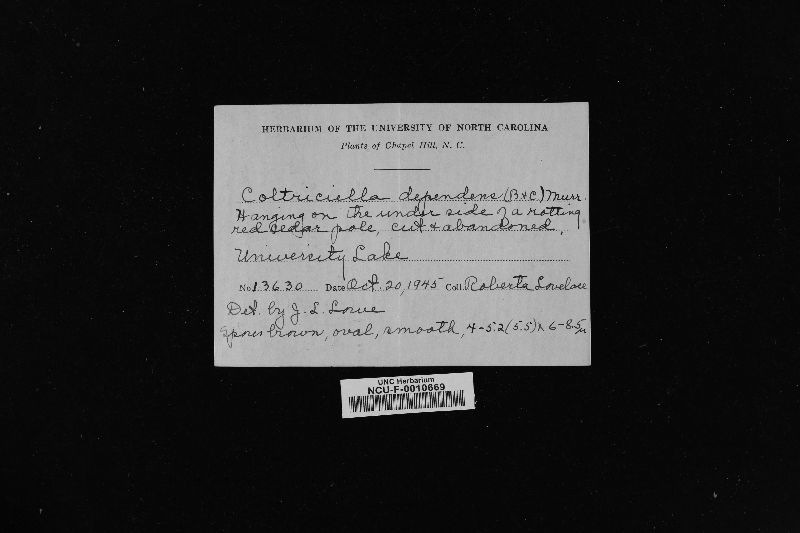 HERBARIUM OF THE UNIVERSITY OF NORTH CAROLINA
Plants of Chapel Hill, N. C.
Coltriciella dependens (B & C) Murr.
Hanging on the under side of a rotting
red cedar pole, cut & abandoned,
University Lake
No. 13630 Date Oct. 20, 1945 Coll. Roberta Lovelace
Det. by J. L. Lowe
Spores brown, oval, smooth, 4-5.2 (5.5) x 6-8.5µ
UNC Herbarium
NCU-F-0010669